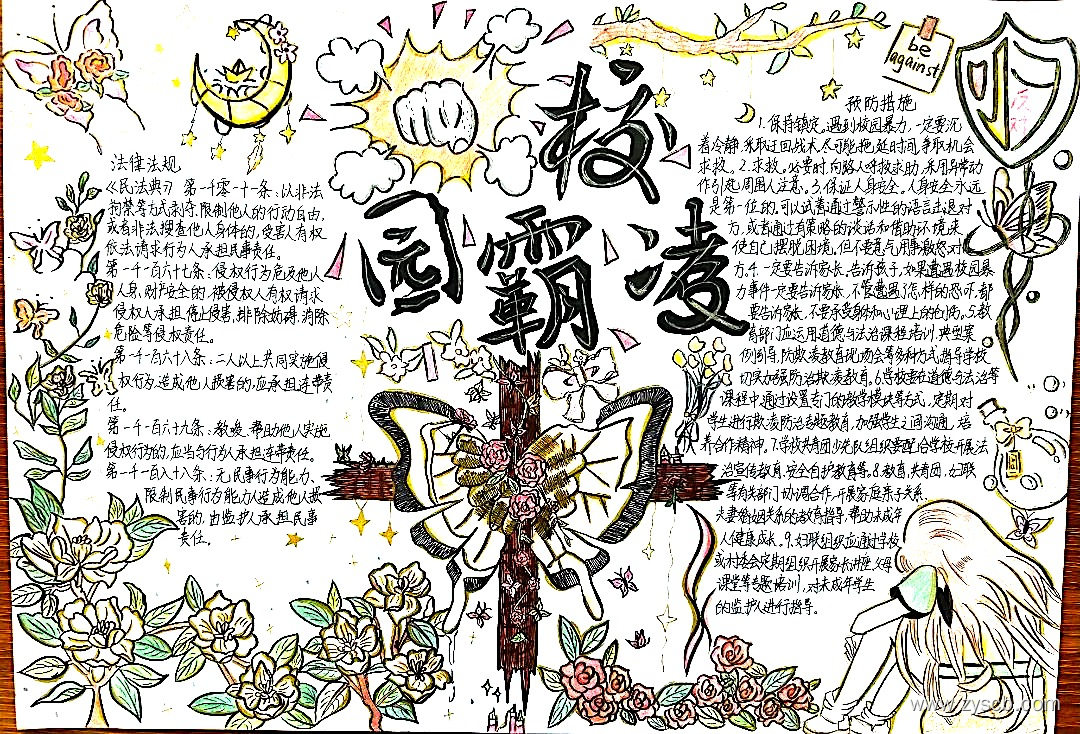 校
园霸凌
be
against
反
对
法律法规
《民法典》第一千零一十一条:以非法
拘禁等方式剥夺、限制他人的行动自由,
或者非法搜查他人身体的,受害人有权
依法请求行为人承担民事责任。
第一千一百六十七条:侵权行为危及他人
人身、财产安全的,被侵权人有权请求
侵权人承担停止侵害、排除妨碍、消除
危险等侵权责任。
第一千一百六十八条:二人以上共同实施侵
权行为,造成他人损害的,应承担连带责
任。
第一千一百六十九条:教唆、帮助他人实施
侵权行为的,应当与行为人承担连带责任。
第一千一百八十八条:无民事行为能力、
限制民事行为能力人造成他人损
害的,由监护人承担民事
责任。
预防措施
1.保持镇定。遇到校园暴力,一定要沉
着冷静。采取迂回战术,尽可能拖延时间,争取机会
求救。2.求救。必要时,向路人呼救求助,采用异常动
作引起周围人注意。3.保证人身安全。人身安全永远
是第一位的,可以试着通过警示性的语言击退对
方,或者通过有策略的谈话和借助环境来
使自己摆脱困境。但不要意气用事激怒对
方。4.一定要告诉家长。告诉孩子,如果遭遇校园暴
力事件一定要告诉家长,不管遭遇了怎样的恐吓,都
要告诉家长,不要承受身体和心理上的创伤。5.教
育部门应运用道德与法治课程培训、典型案
例引导,防欺凌教育现场会等多种方式,指导学校
切实加强防治欺凌教育。6.学校要在道德与法治等
课程中通过设置专门的教学模块等方式,定期对
学生进行欺凌防治专题教育,加强学生之间沟通,培
养合作精神。7.学校共青团、少先队组织要配合学校开展法
治宣传教育、安全自护教育等。8.教育、共青团、妇联
等有关部门协调合作,开展家庭亲子关系、
夫妻婚姻关系的教育指导,帮助未成年
人健康成长。9.妇联组织应通过学校
或村逐会定期组织开展家长讲座、父母
课堂等专题培训,对未成年学生
的监护人进行指导。
www.zysoc.com